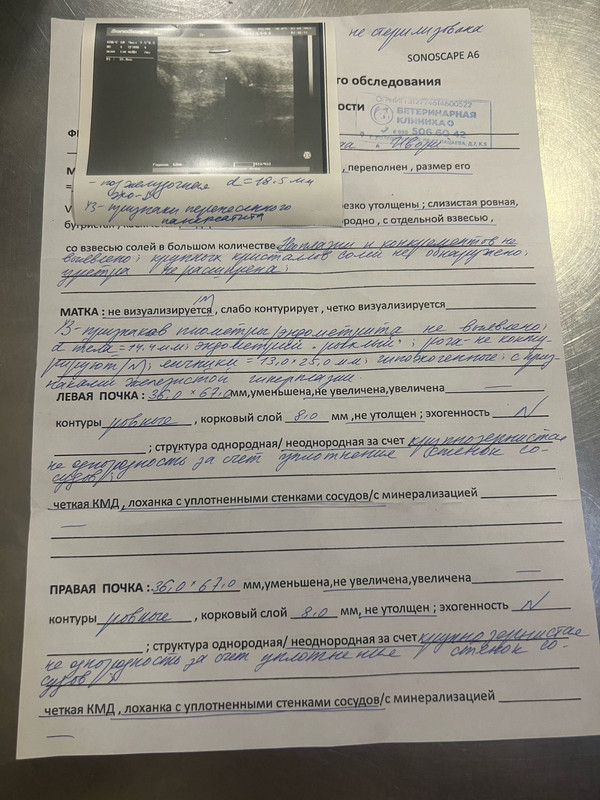 не стерилизована
SONOSCAPE A6
го обследования
ости
ВЕТЕРИНАРНАЯ
КЛИНИКА
506 60 42
, переполнен , размер его
- поджелудочная d = 18.5 мм
УЗ-признаки перенесенного
панкреатита
резко утолщены ; слизистая ровная,
родно , с отдельной взвесью ,
со взвесью солей в большом количестве. Неоплазии и конкрементов не
выявлено; крупных кристаллов солей не обнаружено;
уретра не расширена;
МАТКА : не визуализируется , слабо контурирует , четко визуализируется
УЗ-признаков пиометры/эндометрита не выявлено;
d тела = 14.4 мм; эндометрий ровный; рога - не контури-
руют /N/; яичники = 13,0 × 25,0 мм; гипоэхогенные; с приз-
наками железистой гиперплазии.
ЛЕВАЯ ПОЧКА : 36,0 × 67,0 мм,уменьшена,не увеличена,увеличена —
контуры ровные , корковый слой 8,0 мм ,не утолщен ; эхогенность N
; структура однородная/ неоднородная за счет крупнозернистая
неоднородность за счет уплотнение стенок со-
судов/;
четкая КМД , лоханка с уплотненными стенками сосудов/с минерализацией
—
ПРАВАЯ ПОЧКА : 36,0 × 67,0 мм,уменьшена,не увеличена,увеличена —
контуры ровные , корковый слой 8,0 мм, не утолщен ; эхогенность N
; структура однородная/ неоднородная за счет крупнозернистая
неоднородность за счет уплотнение стенок со-
судов/
четкая КМД , лоханка с уплотненными стенками сосудов/с минерализацией
—